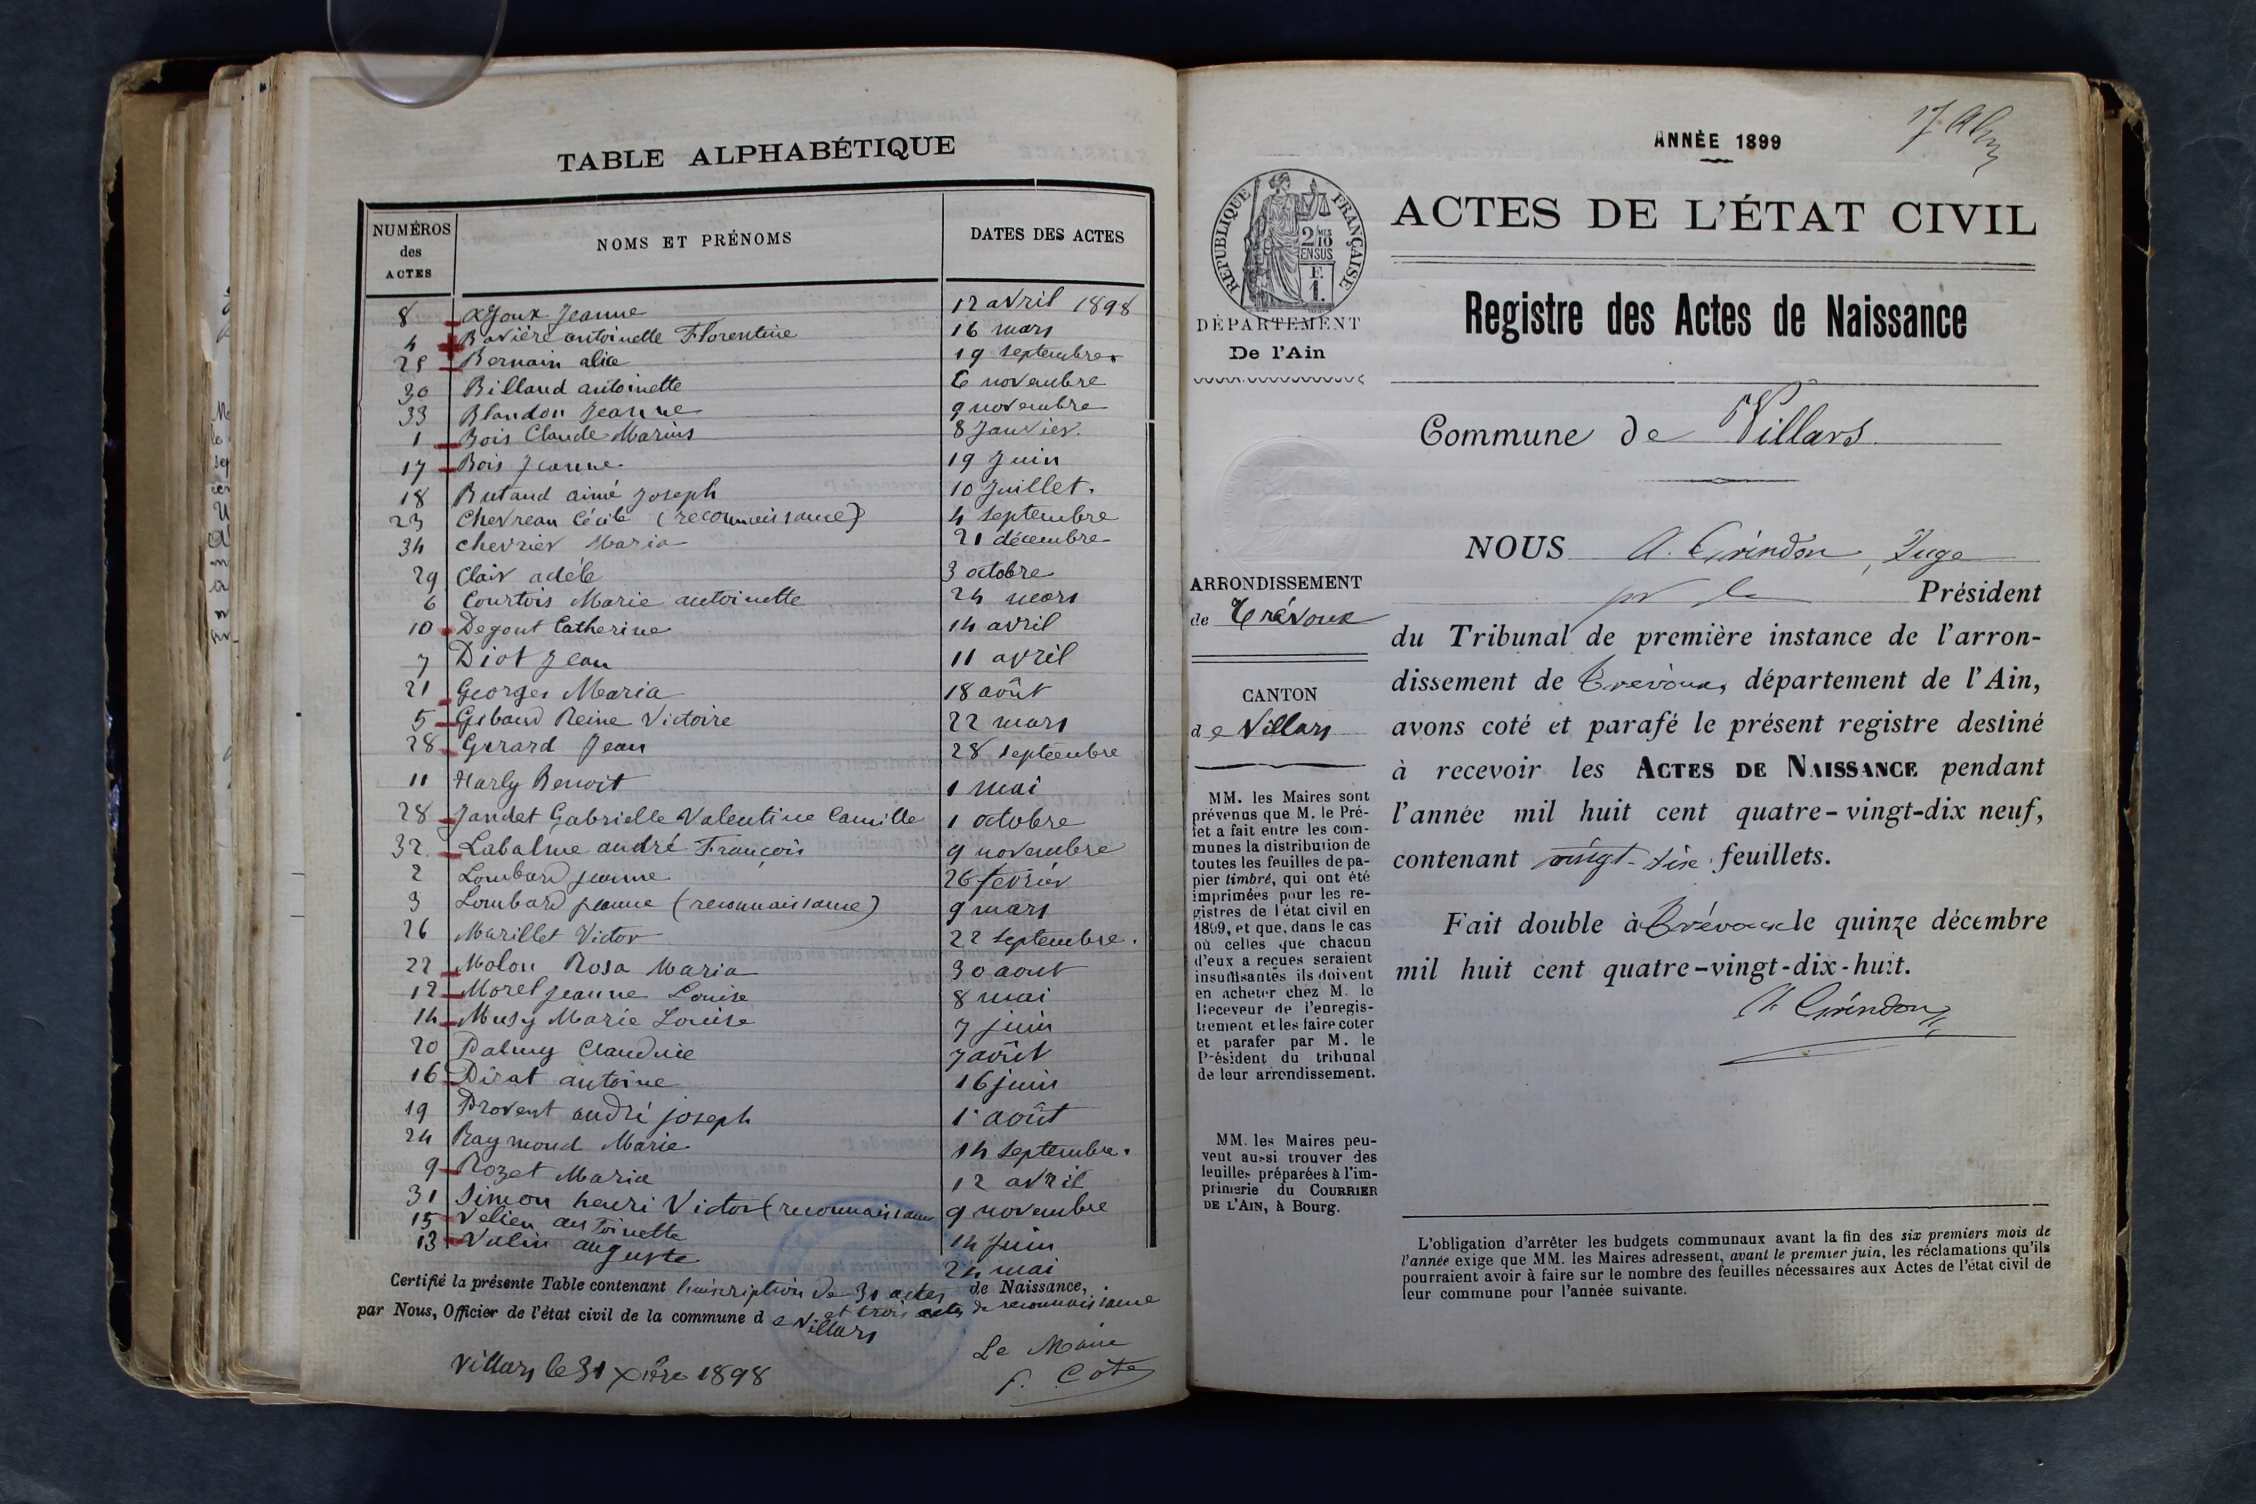 TABLE ALPHABÉTIQUE
NUMÉROS des ACTES NOMS ET PRÉNOMS DATES DES ACTES
8 Ajoux Jeanne 12 avril 1898
4 Bavière antoinette Florentine 16 mars
25 Bernain alice 19 septembre
30 Billaud antoinette 6 novembre
33 Blandon Jeanne 9 novembre
1 Bois Claude Marius 8 Janvier
17 Bois Jeanne 19 Juin
18 Butaud aimé Joseph 10 Juillet.
23 Chevreau Cécile (reconnaissance) 4 septembre
34 Chevrier Maria 21 décembre
29 Clair adèle 3 octobre
6 Courtois Marie antoinette 24 mars
10 Degout Catherine 14 avril
7 Diot Jean 11 avril
21 Georges Maria 18 août
5 Gibaud Reine Victoire 22 mars
28 Girard Jean 28 septembre
11 Harly Benoit 1 mai
28 Jandet Gabrielle Valentine Camille 1 octobre
32 Labalme andré François 9 novembre
2 Lombard jeanne 26 février
3 Lombard jeanne (reconnaissance) 9 mars
26 Marillet Victor 22 septembre.
22 Molon Rosa Maria 30 aout
12 Morel jeanne Louise 8 mai
14 Musy Marie Louise 7 juin
20 Palmy Claudine 7 août
16 Pirat antoine 16 juin
19 Provent andré joseph 1 août
24 Raymond Marie 14 septembre.
9 Rozet Maria 12 avril
31 Simon henri Victor (reconnaissance 9 novembre
15 Velien antoinette 14 Juin
13 Vulin auguste 24 mai
Certifié la présente Table contenant l'inscription de 31 actes de Naissance,
et trois actes de reconnaissance
par Nous, Officier de l'état civil de la commune d e Villars
Villars le 31 Xbre 1898
Le Maire
F. Côte
17
ANNÉE 1899
RÉPUBLIQUE FRANÇAISE
2/10 MES
EN SUS
F.
1.
DÉPARTEMENT
De l'Ain
ACTES DE L'ÉTAT CIVIL
Registre des Actes de Naissance
Commune de Villars
ARRONDISSEMENT
de Trévoux
CANTON
de Villars
MM. les Maires sont
prévenus que M. le Pré-
fet a fait entre les com-
munes la distribution de
toutes les feuilles de pa-
pier timbré, qui ont été
imprimées pour les re-
gistres de l'état civil en
1899, et que, dans le cas
où celles que chacun
d'eux a reçues seraient
insuffisantes ils doivent
en acheter chez M. le
Receveur de l'enregis-
trement et les faire coter
et parafer par M. le
Président du tribunal
de leur arrondissement.
MM. les Maires peu-
vent aussi trouver des
feuilles préparées à l'im-
primerie du COURRIER
DE L'AIN, à Bourg.
NOUS A. Grindon, Juge
pr le Président
du Tribunal de première instance de l'arron-
dissement de Trévoux, département de l'Ain,
avons coté et parafé le présent registre destiné
à recevoir les ACTES DE NAISSANCE pendant
l'année mil huit cent quatre-vingt-dix neuf,
contenant vingt-six feuillets.
Fait double à Trévoux le quinze décembre
mil huit cent quatre-vingt-dix-huit.
A. Grindon
L'obligation d'arrêter les budgets communaux avant la fin des six premiers mois de
l'année exige que MM. les Maires adressent, avant le premier juin, les réclamations qu'ils
pourraient avoir à faire sur le nombre des feuilles nécessaires aux Actes de l'état civil de
leur commune pour l'année suivante.